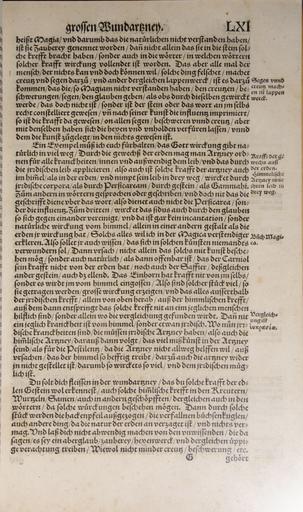 grossen Wundartzney. LXI
heist Magia / und darumb das die natürlichen nicht verstanden haben /
ist sie Zauberey genennet worden / dañ nicht allein das sie in die stein solche
krefft bracht haben / sonder auch in die wörter / in welchen wörtern
solcher krafft wirckung vollendet ist worden. Das aber alle mal der
mensch / der nichts kan und doch können wil / solche ding felschet / machet
creutz und segen darzů / und ander dergleichen lappenwerck / ist es darzů
kommen / das die so Magiam nicht verstanden haben / den creutzen / beschwerungen /
segen / den glauben geben / als ob durch dieselben gewirckt
werde / das doch nicht ist / sonder ist der stein oder das wort an jm selbs
recht constelliert gewesen / uñ nach seiner kunst die influentz imprimiert /
so ist die krafft da gewesen / on allen segen / beschweren und creutz / aber
mit denselben haben sich die heyden und unholden verfüren lassen / unnd
dem die kunst zůgelegt in dem nichts gewesen ist.
Ein Exempel můß ich euch fürhalten / das Gott wirckung gibt natürlich
in viel weg: Durch die gewechß der erden mag man Artzney ordnen
für alle kranckheiten innen und außwendig dem leib / und das durch
die jrdischen leib applicieren / also auch ist solche krafft der artzney auch
im himel / als in der erden / und nimpt sein leib in drey weg / wirckt durch
jrdische corpora / als durch Persicariam / durch gestein / als Gammahi.
Zům andern in wörtern gesprochen oder geschriben / und doch nit das die
geschrifft diene uber das wort / also dienet auch nicht die Persicaria / sonder
die influentz. Zům dritten / wirckt das sidus auch durch den glauben
so sich gegen einander vereinigt / und da ist gar kein incantation / sonder
natürliche wirckung vom himmel / allein in einer andern gestalt als die
erden jr wirckung hat / Solchs alles wil ich in der Magica verstendiger
erkleren. Also sollet jr auch wissen / das sich in solchen künsten niemandes
verwundern sol / Dann ursach / nicht allein das solchs mit künsten beschehen
mög / sonder auch natürlich / als dann offenbar ist / das der Carniol
sein krafft nicht von der erden hat / noch auch der Saffir / deßgleichen
ander gestein / auch dz ellend. Das Einhorn hat krafft nit von jm selbs /
sonder es wirdt jm vom himmel eingossen. Also sind solcher stück viel / so
sie getragen werden / grosse wirckung erzeigen / und das alles ausserhalb
der jrdischen krefft / allein von oben herab / auß der himmlischen krefft /
auß dem dann entspringt das solche krefft mit an ein jeglichen menschen
behilflich sind / sonder allein wo die vergleichung gefunden wirdt. Dañ nit
ein jeglich kranckheit ist vom himmel / sonder etwan jrdisch. Wo nůn jrdische
kranckheiten sind / die müssen jrdische Artzney haben / also auch die
himlische Artzney: darauß dann volgt / das viel mißkünst in der Artzney
seind / als für die Pestilentz / da die Artzney nicht allweg helffen wil / auß
ursachen / das der himmel so hefftig treibt / darzů auch die artzney wider
jn nicht gestellet ist / darumb so wirckets so viel / und dem jrdischen müglich
ist.
Du solt dich fleissen in der wundartzney / das du solche krafft der edlen
Gestein wol erkennest / auch solche himlische krefft in den Kreutern /
Wurtzeln / Samen / auch in andern geschöpfften / dergleichen auch in den
wörtern / da solche würckungen beschehen mögen. Dann durch solche
stück werden die hackenpfeil ausgezogen / die verfallnen büchsenkuglen /
auch andere ding / da die natur der erden an verzaget ist / und nichts vermag.
Und laß dich nicht abwendig machen von den unwissenden / die da
sagen / es sey ein aberglaub / zauberey / hexenwerck / und dergleichen üppige
verachtung treiben / Wiewol nicht minder creutz / beschwerung / etc.
G gehört
Segen unnd
creutz machen
ist lappenwerck.
Bůch Magica.